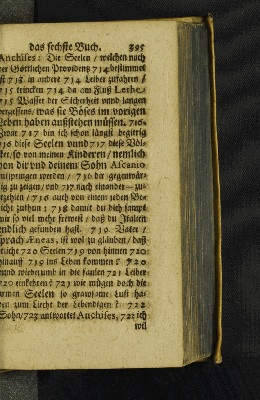 das sechste Buch. 395
Anchises: Die Seelen / welchen nach
der Göttlichen Providentz 714 bestimmet
ist 713 in andere 714 Leiber zufahren /
715 trincken 714 da am Fluß Lethe,
715 Wasser der Sicherheit unnd langen
vergessens, was sie Böses im vorigen
Leben haben außstehen müssen. 716.
Zwar 717 bin ich schon längst begierig
716 diese Seelen unnd 717 diese Völ-
cker, so von meinen Kinderen / nemlich
von dir und deinem Sohn Ascanio
entspringen werden / 716 der gegenwär-
tig zu zeigen / und 717 nach einander zu-
erzehlen / 716 auch von einem jeden Be-
richt zuthun: 718 damit du dich sampt
mir so viel mehr frewest / daß du Italien
endlich gefunden hast. 719. Vater /
sprach Æneas, ist wol zu glauben / daß
etliche 720 Seelen 719 von hinnen 720
hinauff 719 ins Leben kommen? 720
unnd wiederumb in die faulen 721 Leiber
720 einkehren? 721 wie mögen doch die
armen Seelen so grawsame Lust ha-
ben zum Liecht der Lebendigen? 722
Sohn / 723 antwortet Anchises, 722 ich
wil